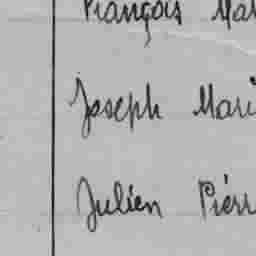 François Mar
Joseph Mari
Julien Pierr